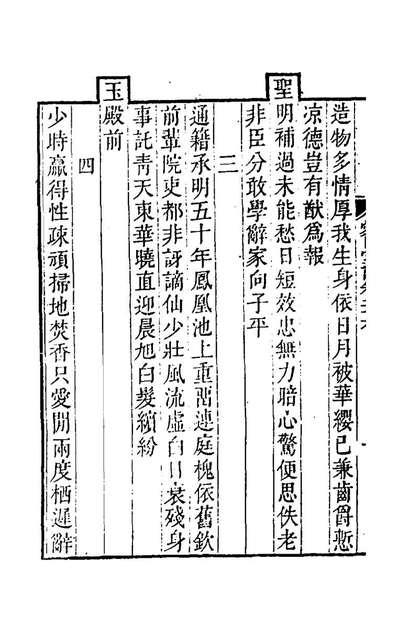 造物多情厚我生身依日月被華纓已兼齒爵慙
凉德豈有猷爲報
聖
明補過未能愁日短效忠無力暗心驚便思佚老
非臣分敢學辭家向子平
三
通籍承明五十年鳳凰池上重留連庭槐依舊欽
前輩院吏都非訝謫仙少壯風流虛白日衰殘身
事託靑天東華曉直迎晨旭白髮繽紛
玉
殿前
四
少時贏得性疎頑掃地焚香只愛閒兩度栖遲辭